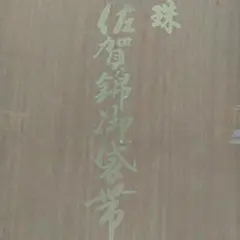 珠
佐賀錦御袋帯